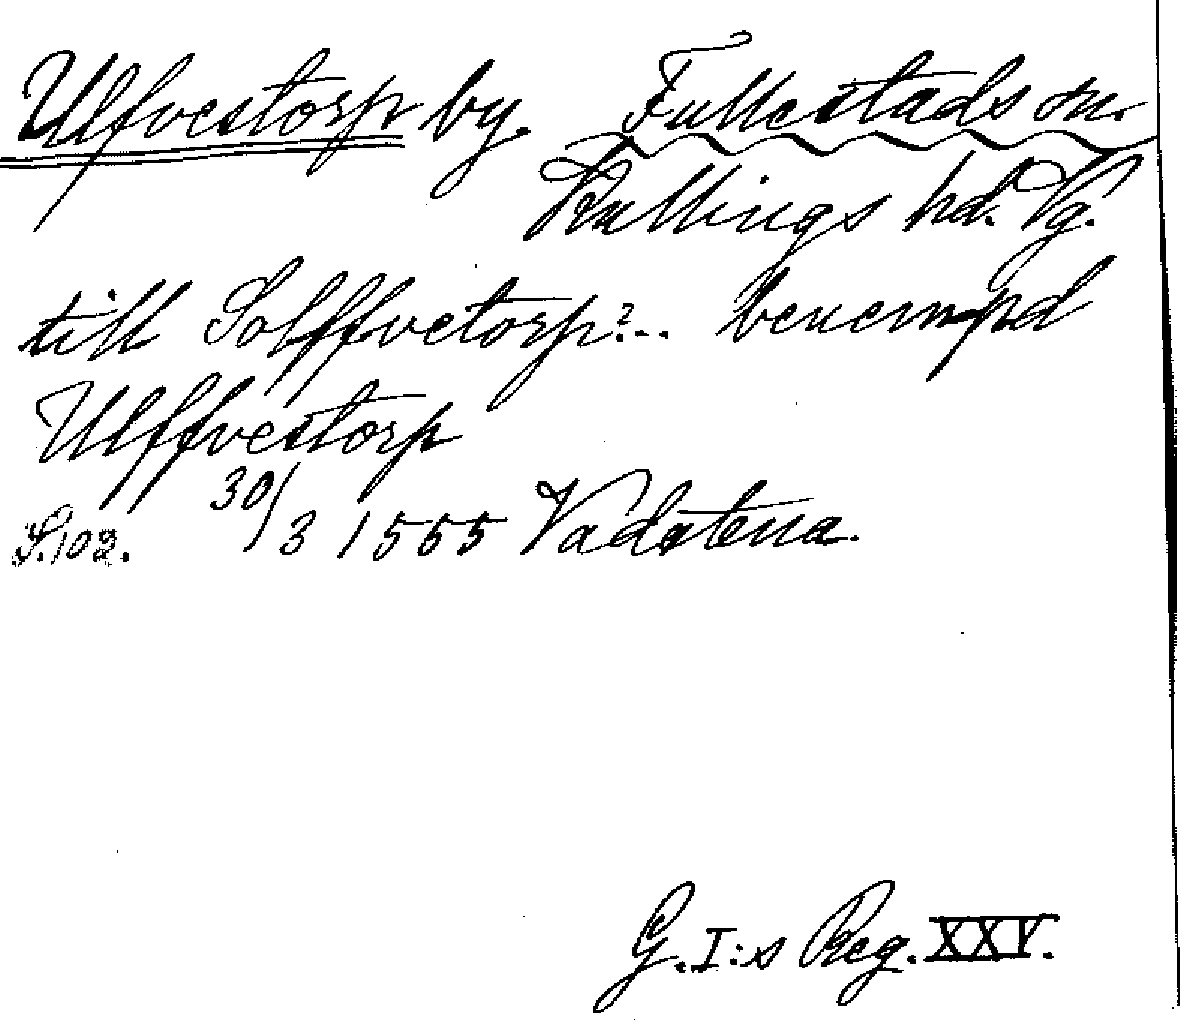 Ulfvestorp by. Fullestads sn.
Kullings hd. Vg.
till Solffvetorp?.. benempd
Ulffvestorp
S.102. 30/3 1555 Vadstena.
G.I:s Reg. XXV.